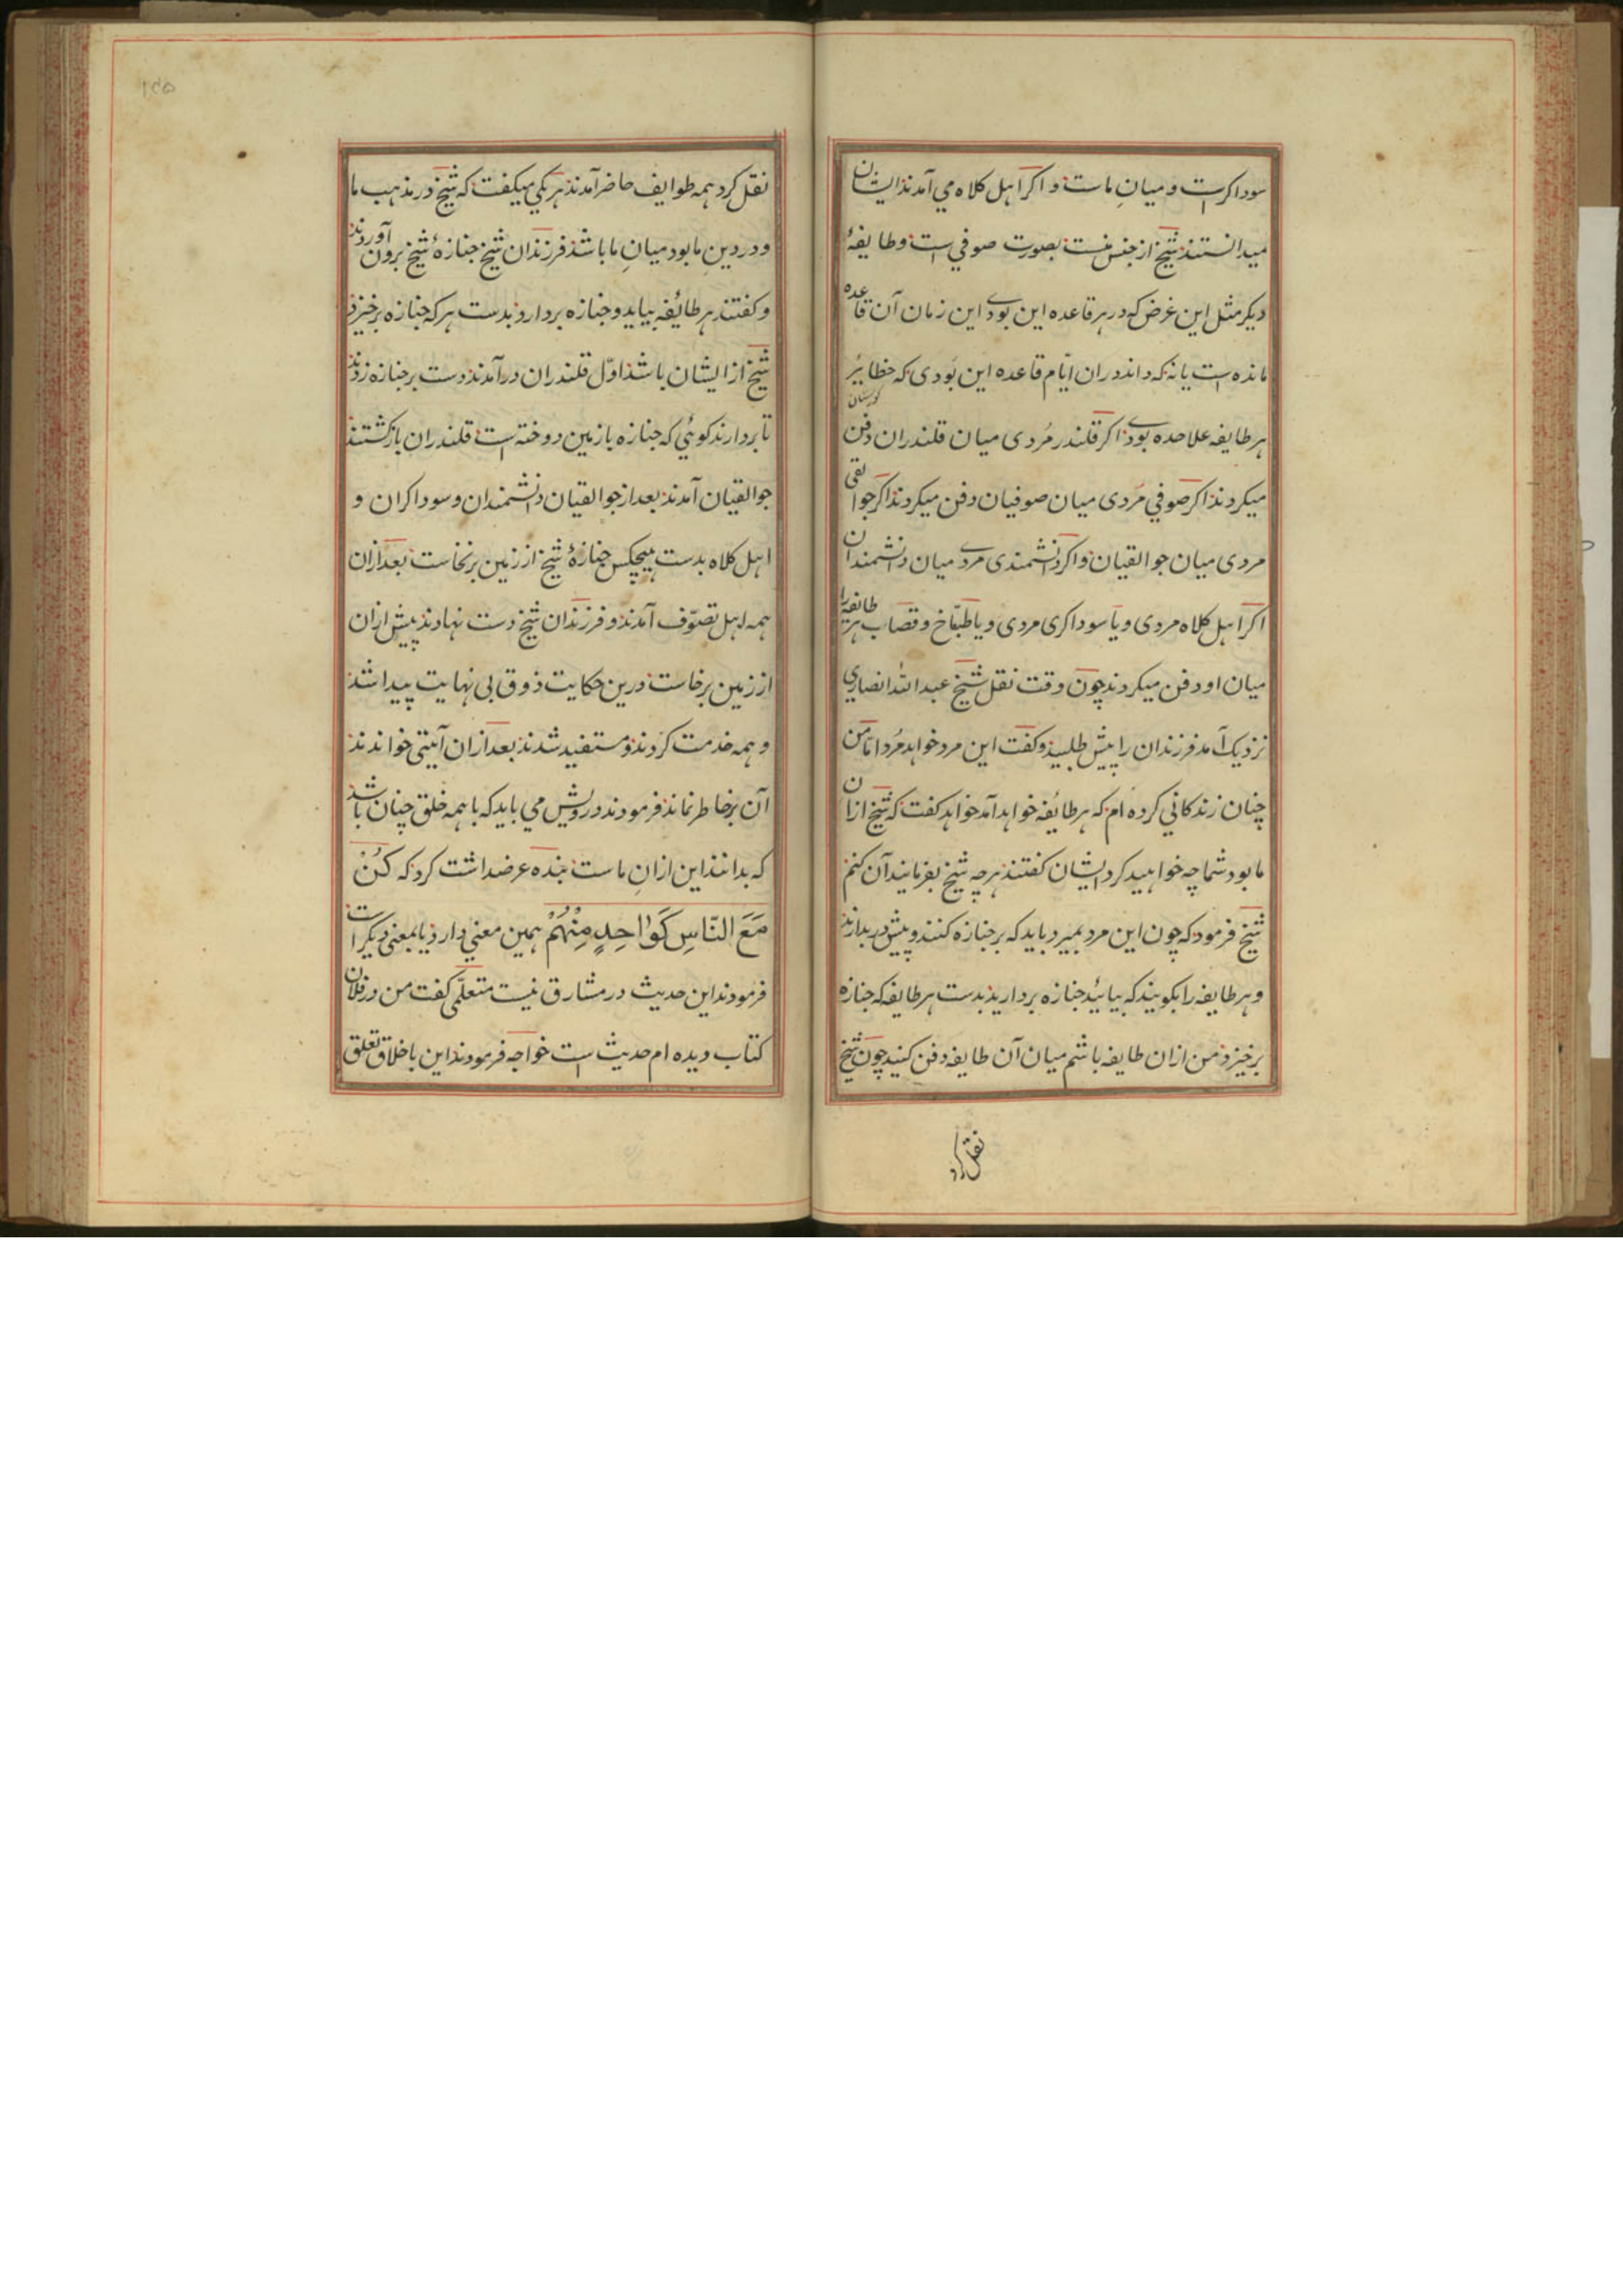 سوداکرست و میانِ ماست و اکر اهل کلاه می آمدند ایشان
میدانستند شیخ از جنس منست بصورت صوفی است و طایفهٔ
دیکر مثل این غرض که در هر قاعده این بودی این زمان آن قاعده
مانده است یا نه که داند در ان ایّام قاعده این بُودی که حظایر
کورستان
هر طایفه علاحده بودی اکر قلندر مُردی میان قلندران دفن
میکردند اکر صوفی مَردی میان صوفیان دفن میکردند اکر جوالقی
مردی میان جوالقیان و اکر دانشمندی مردی میان دانشمندان
اکر اهل کلاه مردی و یا سوداکری مردی و یا طبّاخ و قصاب هر طائفه را
میان او دفن میکردند چون وقت نقل شیخ عبدالله انصاری
نزدیک آمد فرزندان را پیش طلبید و کفت این مرد خواهد مُرد اما من
چنان زندکانی کرده ام که هر طائفه خواهد آمد خواهد کفت که شیخ ازان
ما بود شما چه خواهید کرد ایشان کفتند هر چه شیخ بفرمایند آن کنم
شیخ فرمود که چون این مرد بمیرد باید که بر جنازه کنند و پیش در بدارند
و هر طایفه را بکویند که بیائید جنازه بردارید بدست هر طایفه که جنازه
برخیزد من ازان طایفه باشم میان آن طایفه دفن کنید چون شیخ
نقل کرد
۱۴۵
نقل کرد همه طوایف حاضر آمدند هر یکی میکفت که شیخ در مذهب ما
و در دین ما بود میانِ ما باشد فرزندان شیخ جنازهٔ شیخ برون آوردند
و کفتند هر طائفه بیاید و جنازه بردارد بدست هر که جنازه برخیزد
شیخ از ایشان باشد اوّل قلندران در آمدند دست بر جنازه زدند
تا بردارند کوئی که جنازه با زمین دوخته است قلندران بازکشتند
جوالقیان آمدند بعد از جوالقیان دانشمندان و سوداکران و
اهل کلاه بدست هیچکس جنازهٔ شیخ از زمین برنخاست بعد ازان
همه اهل تصوّف آمدند و فرزندان شیخ دست نهادند پیش ازان
از زمین برخاست درین حکایت ذوق بی نهایت پیدا شد
و همه خدمت کردند و مستفید شدند بعد ازان آیتی خواندند
آن بر خاطر نماند فرمودند درویش می باید که با همه خلق چنان باشد
که بدانند این ازانِ ماست بنده عرضداشت کرد که کُنْ
مَعَ النَّاسِ کَوٰاحِدٍ مِنْهُمْ همین معنی دارد یا بمعنی دیکر است
فرمودند این حدیث در مشارق نیست متعلّمی کفت من در فلان
کتاب دیده ام حدیث است خواجه فرمودند این باخلاق تعلق